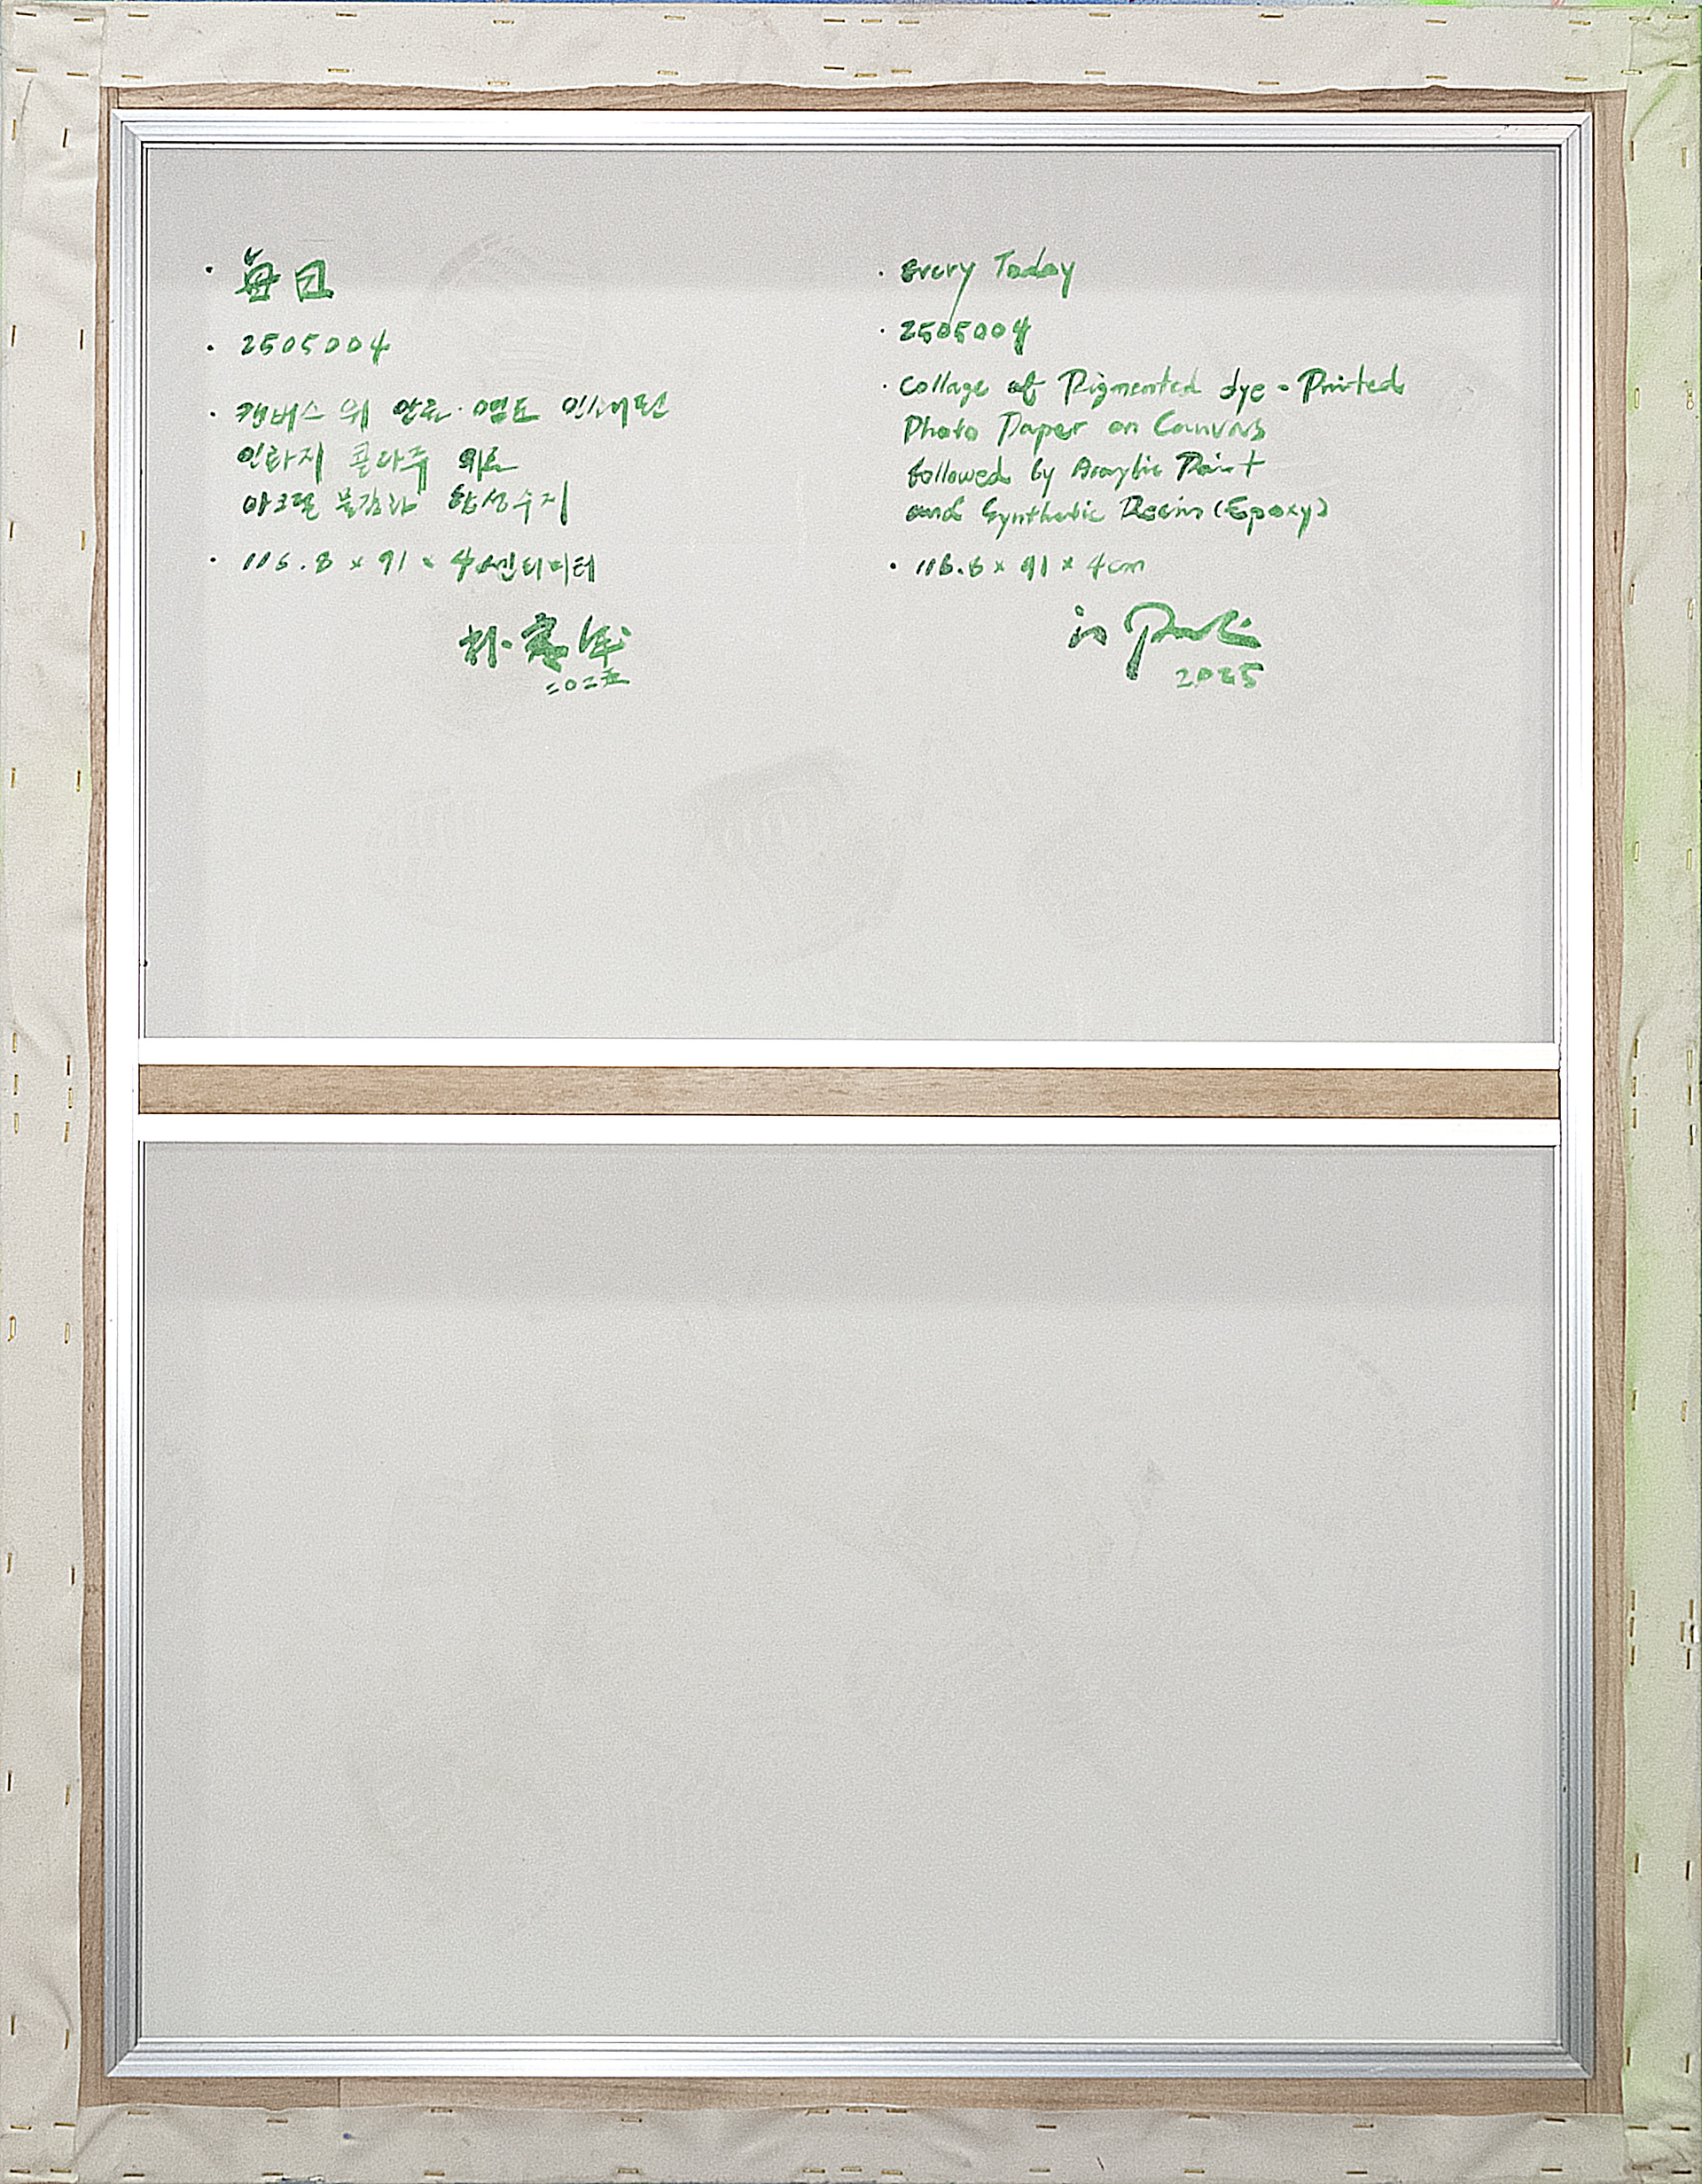 · 每日
· 2505004
· 캔버스 위 안료·염료 인쇄된
인화지 콜라주 위로
아크릴 물감과 합성수지
· 116.8 x 91 x 4센티미터
二〇二五
· every Today
· 2505004
· Collage of Pigmented dye-Printed
Photo Paper on Canvas
followed by Acrylic Paint
and Synthetic Resin (Epoxy)
· 116.8 x 91 x 4cm
in Park
2025